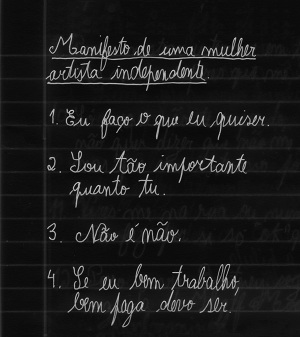 Manifesto de uma mulher
artista independente.
1. Eu faço o que eu quiser.
2. Sou tão importante
quanto tu.
3. Não é não.
4. Se eu bem trabalho,
bem paga devo ser.